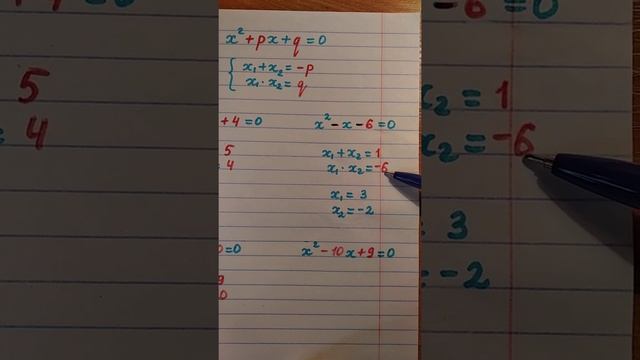 x² + px + q = 0
x₁ + x₂ = -p
x₁ · x₂ = q
+ 4 = 0
5
4
x² - x - 6 = 0
x₁ + x₂ = 1
x₁ · x₂ = -6
x₁ = 3
x₂ = -2
= 0
9
0
x² - 10x + 9 = 0
5
= 4
- 6 = 0
x₂ = 1
x₂ = -6
= 3
= -2